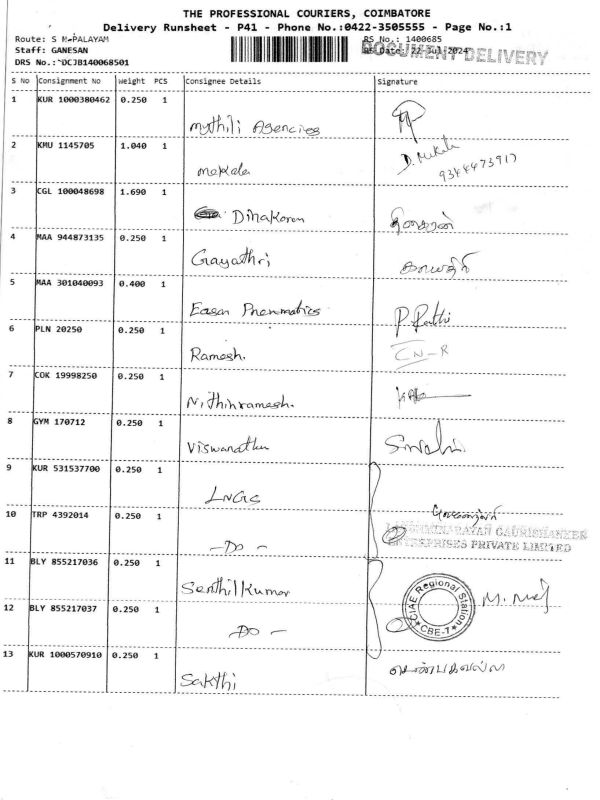 THE PROFESSIONAL COURIERS, COIMBATORE
Delivery Runsheet - P41 - Phone No.:0422-3505555 - Page No.:1
Route: S M PALAYAM
RS No.: 1400685
Staff: GANESAN
RS Date: 22-Jul-2024
DOCUMENT DELIVERY
DRS No.: DCJB140068501
S No Consignment No Weight PCS Consignee Details Signature
1 KUR 1000380462 0.250 1
Mythili Agencies
2 KMU 1145705 1.040 1
Mekala D. Mekala
9344473917
3 CGL 100048698 1.690 1
Dinakaran தினகரன்
4 MAA 944873135 0.250 1
Gayathri காயத்ரி
5 MAA 301040093 0.400 1
Easan Pneumatics P. Rathi
6 PLN 20250 0.250 1
Ramesh. CN-R
7 COK 19998250 0.250 1
Nithinramesh.
8 GYM 170712 0.250 1
Viswanathan
9 KUR 531537700 0.250 1
LNGS
10 TRP 4392014 0.250 1
LAKSHMINARAYAN GAURISHANKER
-DO- ENTERPRISES PRIVATE LIMITED
11 BLY 855217036 0.250 1
Senthilkumar CIAE Regional Station CBE-7
12 BLY 855217037 0.250 1
-DO-
13 KUR 1000570910 0.250 1
Sakthi செண்பகவல்லி